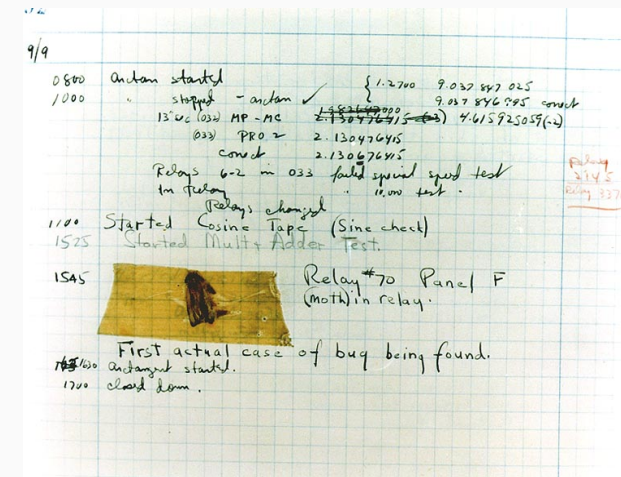 9/9
0800 Antan started
1000 " stopped - antan ✓ { 1.2700 9.037 847 025
9.037 846 995 conect
13"uc (032) MP - MC 2.130476415 (-3) 4.615925059(-2)
(033) PRO 2 2.130476415
conect 2.130676415
Relays 6-2 in 033 failed special speed test
In Relay " 10,000 test .
Relay
2145
Relay 337
Relays changed
1100 Started Cosine Tape (Sine check)
1525 Started Mult + Adder Test.
1545 Relay #70 Panel F
(moth) in relay.
First actual case of bug being found.
1630 antangent started.
1700 closed down.